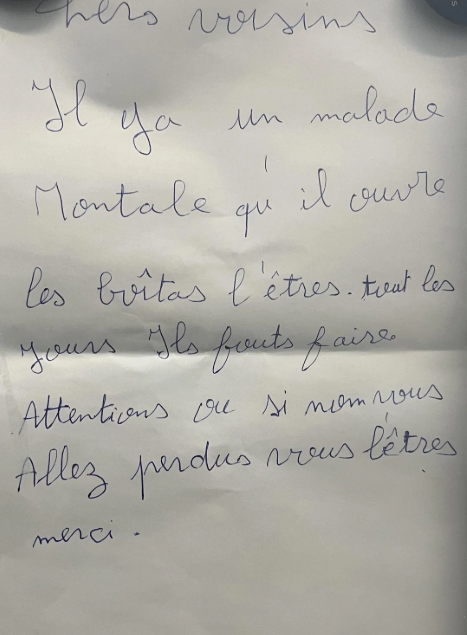 chers voisins
Il ya un malade
Montale qu'il ouvre
les boîtas l'êtres. tout les
jours Ils fouts faise
Attentions ou si nom vous
Allez perdus vous l'êtres
merci.